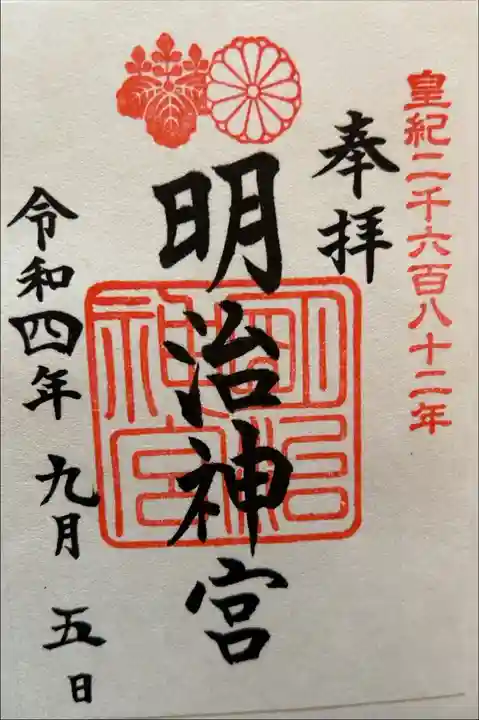 皇紀二千六百八十二年
奉拝
明治神宮
明治
神宮
令和四年 九月 五日